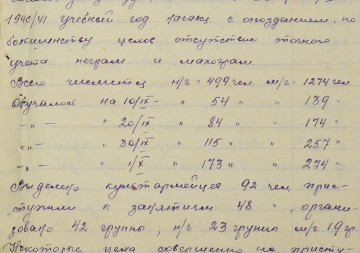 1940/41 учебный год начался с опозданием, по
большинству цехов отсутствие точного
учета неграм. и малограм.
Всего числится н/г = 499 чел. м/г = 1274 чел.
Обучалось на 10/IX - " 54 " " 139 "
-"- " 20/IX " 84 " " 174 "
-"- " 30/IX " 115 " " 257 "
-"- " 1/X " 173 " " 274 "
Выделено культармейцев 92 чел. прис-
тупили к занятиям 48 ", органи-
зовано 42 группы, н/г 23 группы м/г 19 гр.
Некоторые цеха совершенно не присту-